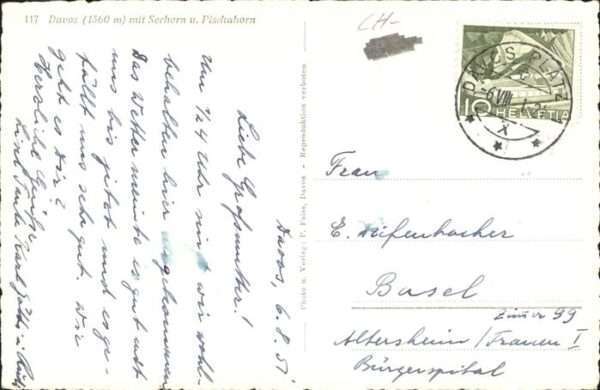 117 Davos (1560 m) mit Seehorn u. Pischahorn
CH-
DAVOS-PLATZ
-6.VIII.
X
10 HELVETIA
Photo u. Verlag: Davos - Reproduktion verboten
Davos, 6.8.51
Liebe Großmutter!
Um ½ 4 Uhr sind wir wohl-
behalten hier angekommen
Das Wetter meinte es gut mit
uns bis jetzt und es ge-
fällt uns sehr gut. Wie
geht es Dir?
Herzliche Grüße
Tante
Frau
E. Diefenbacher
Basel
Zimmer 99
Altersheim/Frauen I
Bürgerspital